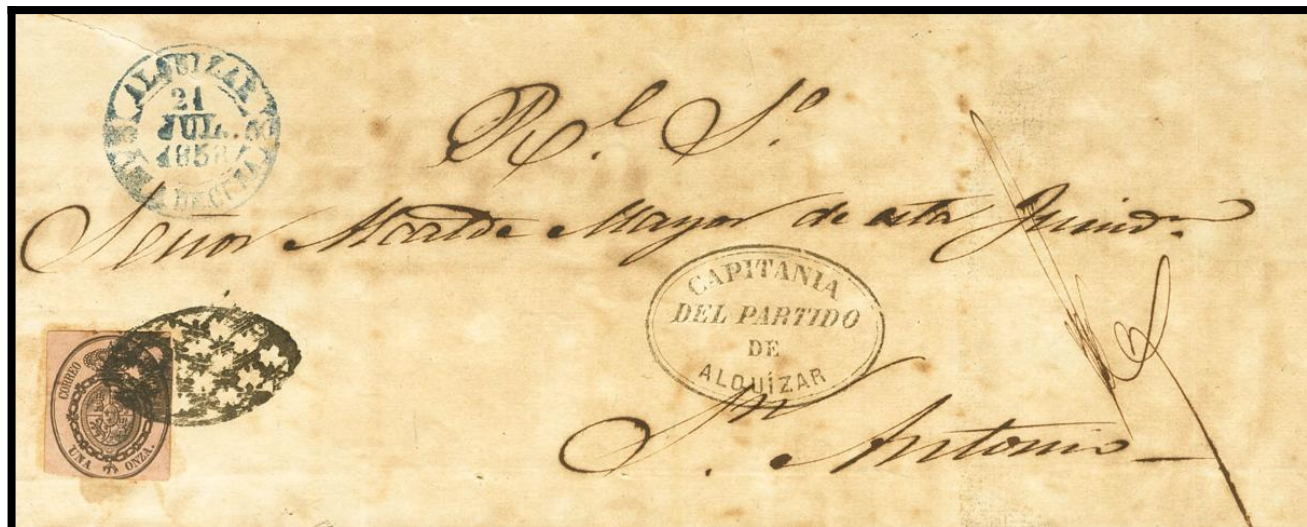 ALQUIZAR
21
JUL.
1858
R.l S.o
Señor Alcalde Mayor de esta
CAPITANIA
DEL PARTIDO
DE
ALQUÍZAR
Sn. Antonio
CORREO
UNA ONZA.